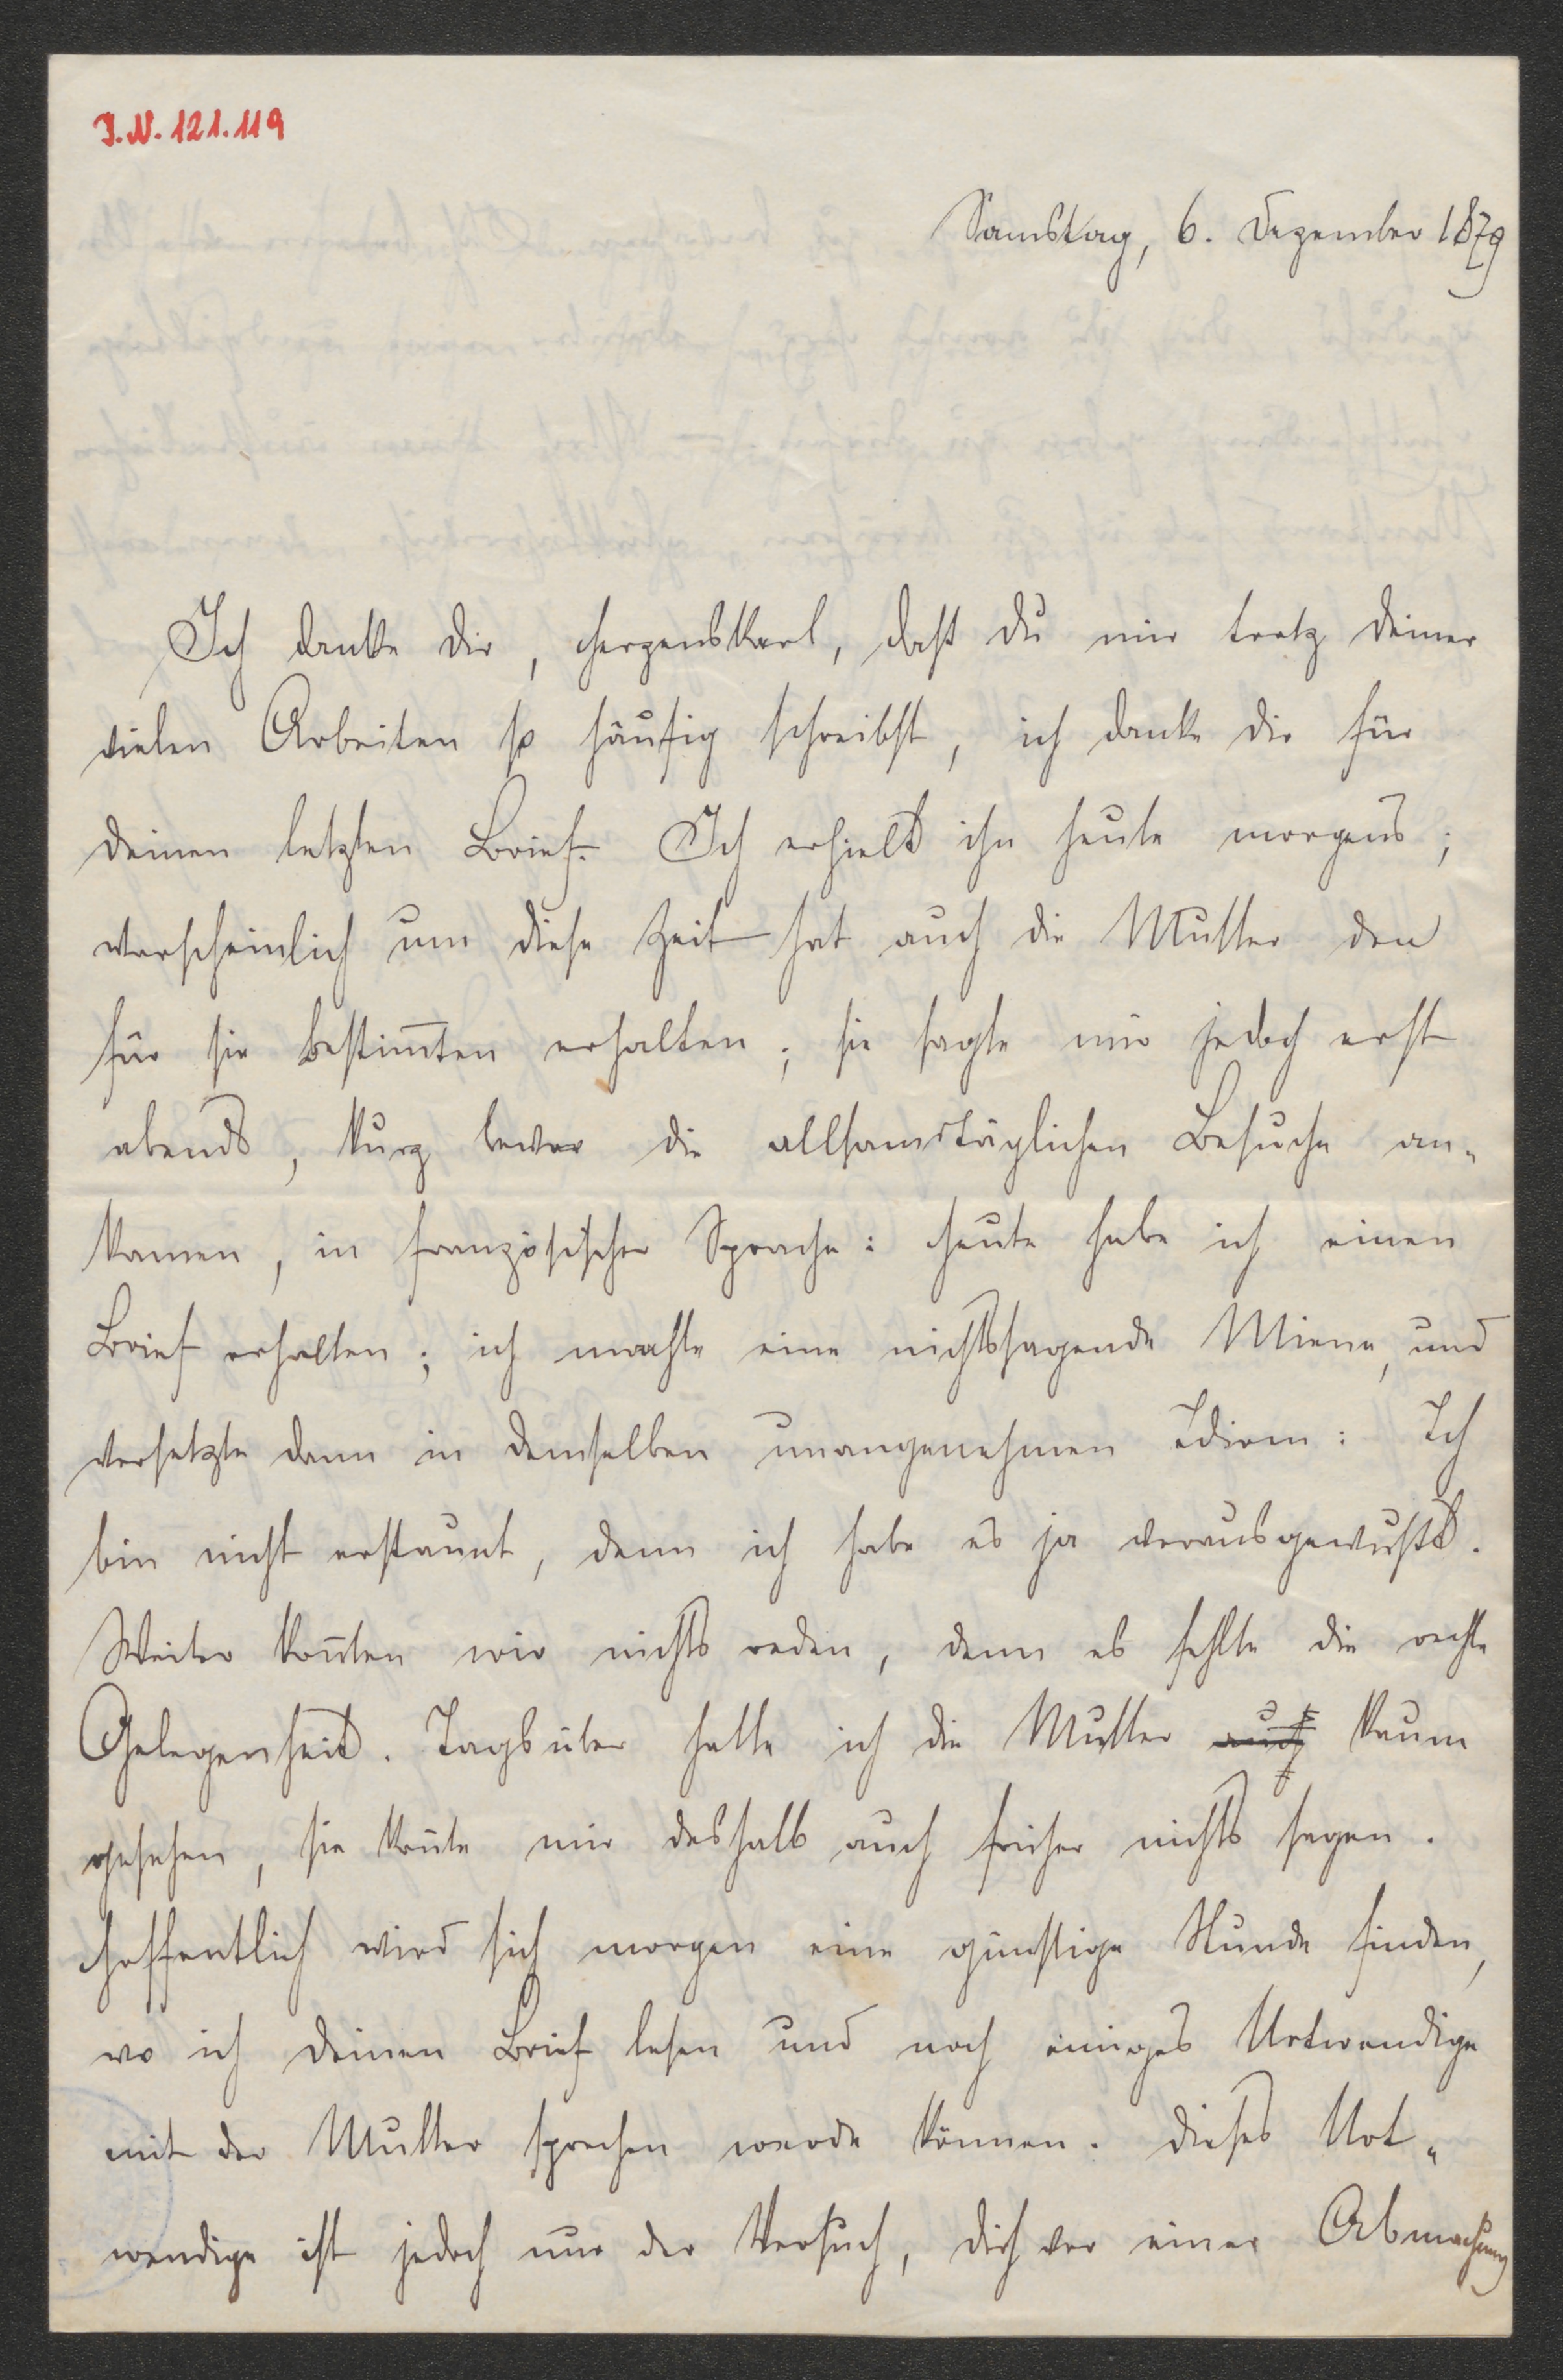 J.N. 121.119
Samstag, 6. Dezember 1879
Ich danke dir, Herzenskarl, daß du mir trotz deiner
vielen Arbeiten so häufig schreibst, ich danke dir für
deinen letzten Brief. Ich erhielt ihn heute morgens;
warscheinlich um diese Zeit hat auch die Mutter den
für sie bestim̄ten erhalten; sie sagte mir jedoch erst
abends, kurz bevor die allsamstäglichen Besuche an-
kamen, in französischer Sprache: Heute habe ich einen
Brief erhalten; ich machte eine nichtssagende Miene, und
versetzte dann in demselben unangenehmen Idiom: Ich
bin nicht erstaunt, denn ich habe es ja vorausgewußt.
Weiter kon̄ten wir nichts reden, denn es fehlte die rechte
Gelegenheit. Tagsüber hatte ich die Mutter auch kaum
gesehen, sie kon̄te mir deshalb auch früher nichts sagen.
Hoffentlich wird sich morgen eine günstige Stunde finden,
wo ich deinen Brief lesen und noch einiges Notwendige
mit der Mutter sprechen werde können. Dieses Not-
wendige ist jedoch nur der Versuch, dich vor einer Abmachung